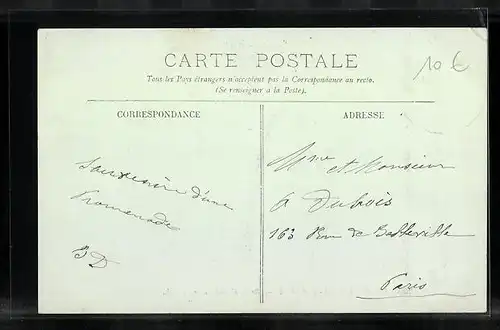 CARTE POSTALE
Tous les Pays étrangers n'acceptent pas la Correspondance au recto.
(Se renseigner à la Poste).
10 €
CORRESPONDANCE
Souvenir d'une
Promenade
ADRESSE
Mme et Monsieur
A Dubois
163 Rue de Belleville
Paris